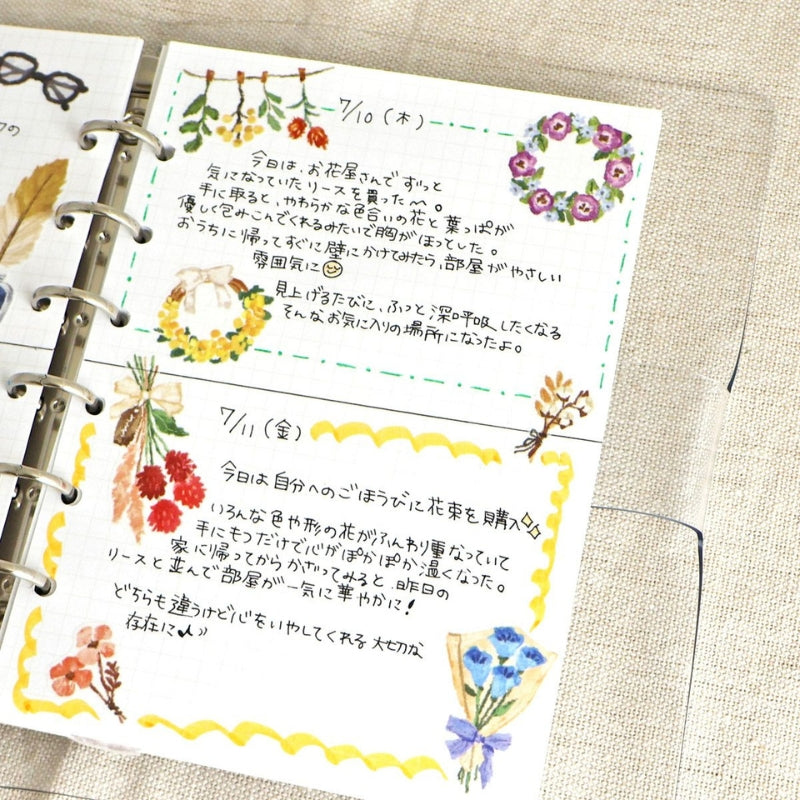 クの
7/10 (木)
今日は、お花屋さんでずっと
気になっていたリースを買った〜。
手に取ると、やわらかな色合いの花と葉っぱが
優しく包みこんでくれるみたいで胸がほっとした。
おうちに帰ってすぐに壁にかけてみたら、部屋がやさしい
雰囲気に
見上げるたびに、ふっと深呼吸したくなる
そんなお気に入りの場所になったよ。
7/11 (金)
今日は自分へのごほうびに花束を購入
いろんな色や形の花がふんわり重なっていて
手にもつだけで心がぽかぽか温くなった。
家に帰ってからかざってみると、昨日の
リースと並んで部屋が一気に華やかに!
どちらも違うけど心をいやしてくれる大切な
存在に♪